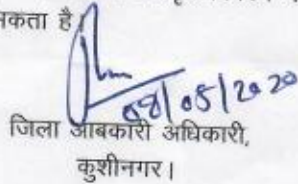 सकता है।
08/05/2020
जिला आबकारी अधिकारी,
कुशीनगर।